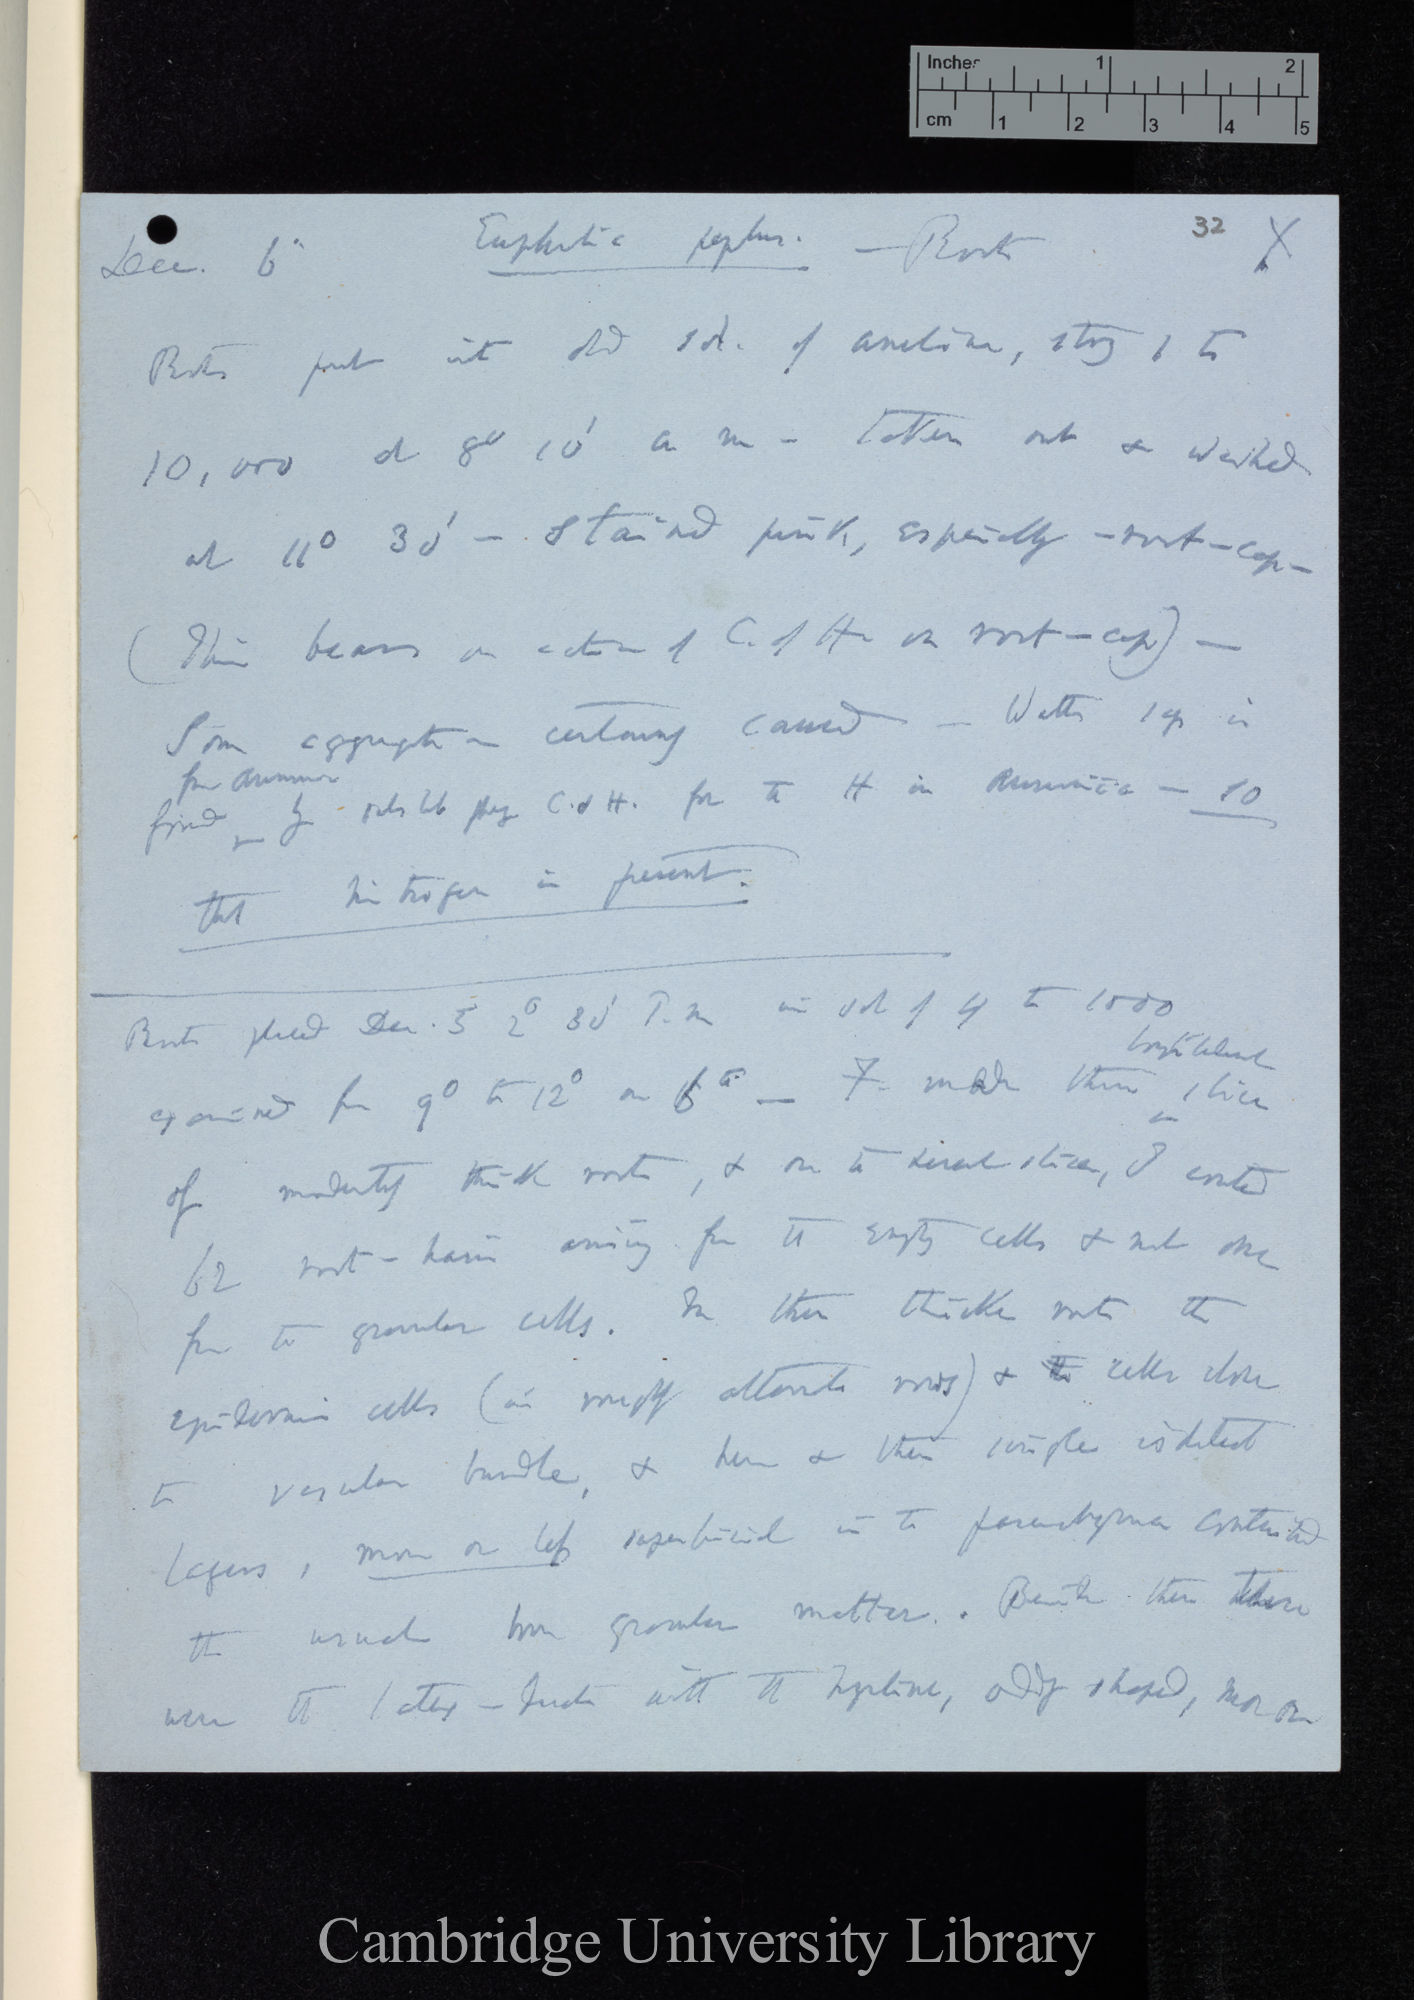 Inches 1 2
cm 1 2 3 4 5
32 X
Dec. 6 Euphorbia peplus. — Roots
Roots put into old sol. of aniline, strong 1 to
10,000 at 8° 10' a m - taken out & washed
at 11° 30' — Stained pink, especially - root-cap -
(This bears on action of C. of Am on root-cap) —
Some aggregation certainly caused — Watts says is
from ammonia
formed by substituting C. & H. for the H in Ammonia — So
that nitrogen is present.
Roots placed Dec. 5 2° 30' P.m in sol of 4 to 1000
longitudinal
examined from 9° to 12° on 6th — F. made thin slices
of moderately thick roots, & on the several slices, I counted
62 root-hairs arising from the empty cells & not one
from the granular cells. In these thicker roots the
epidermis cells (in roughly alternate rows) & the cells close
to vascular bundle, & here & there single isolated
layers, more or less superficial in the parenchyma contained
the usual brown granular matter. Beside these there
were the latex-ducts with the hyaline, oddly shaped, more or
Cambridge University Library